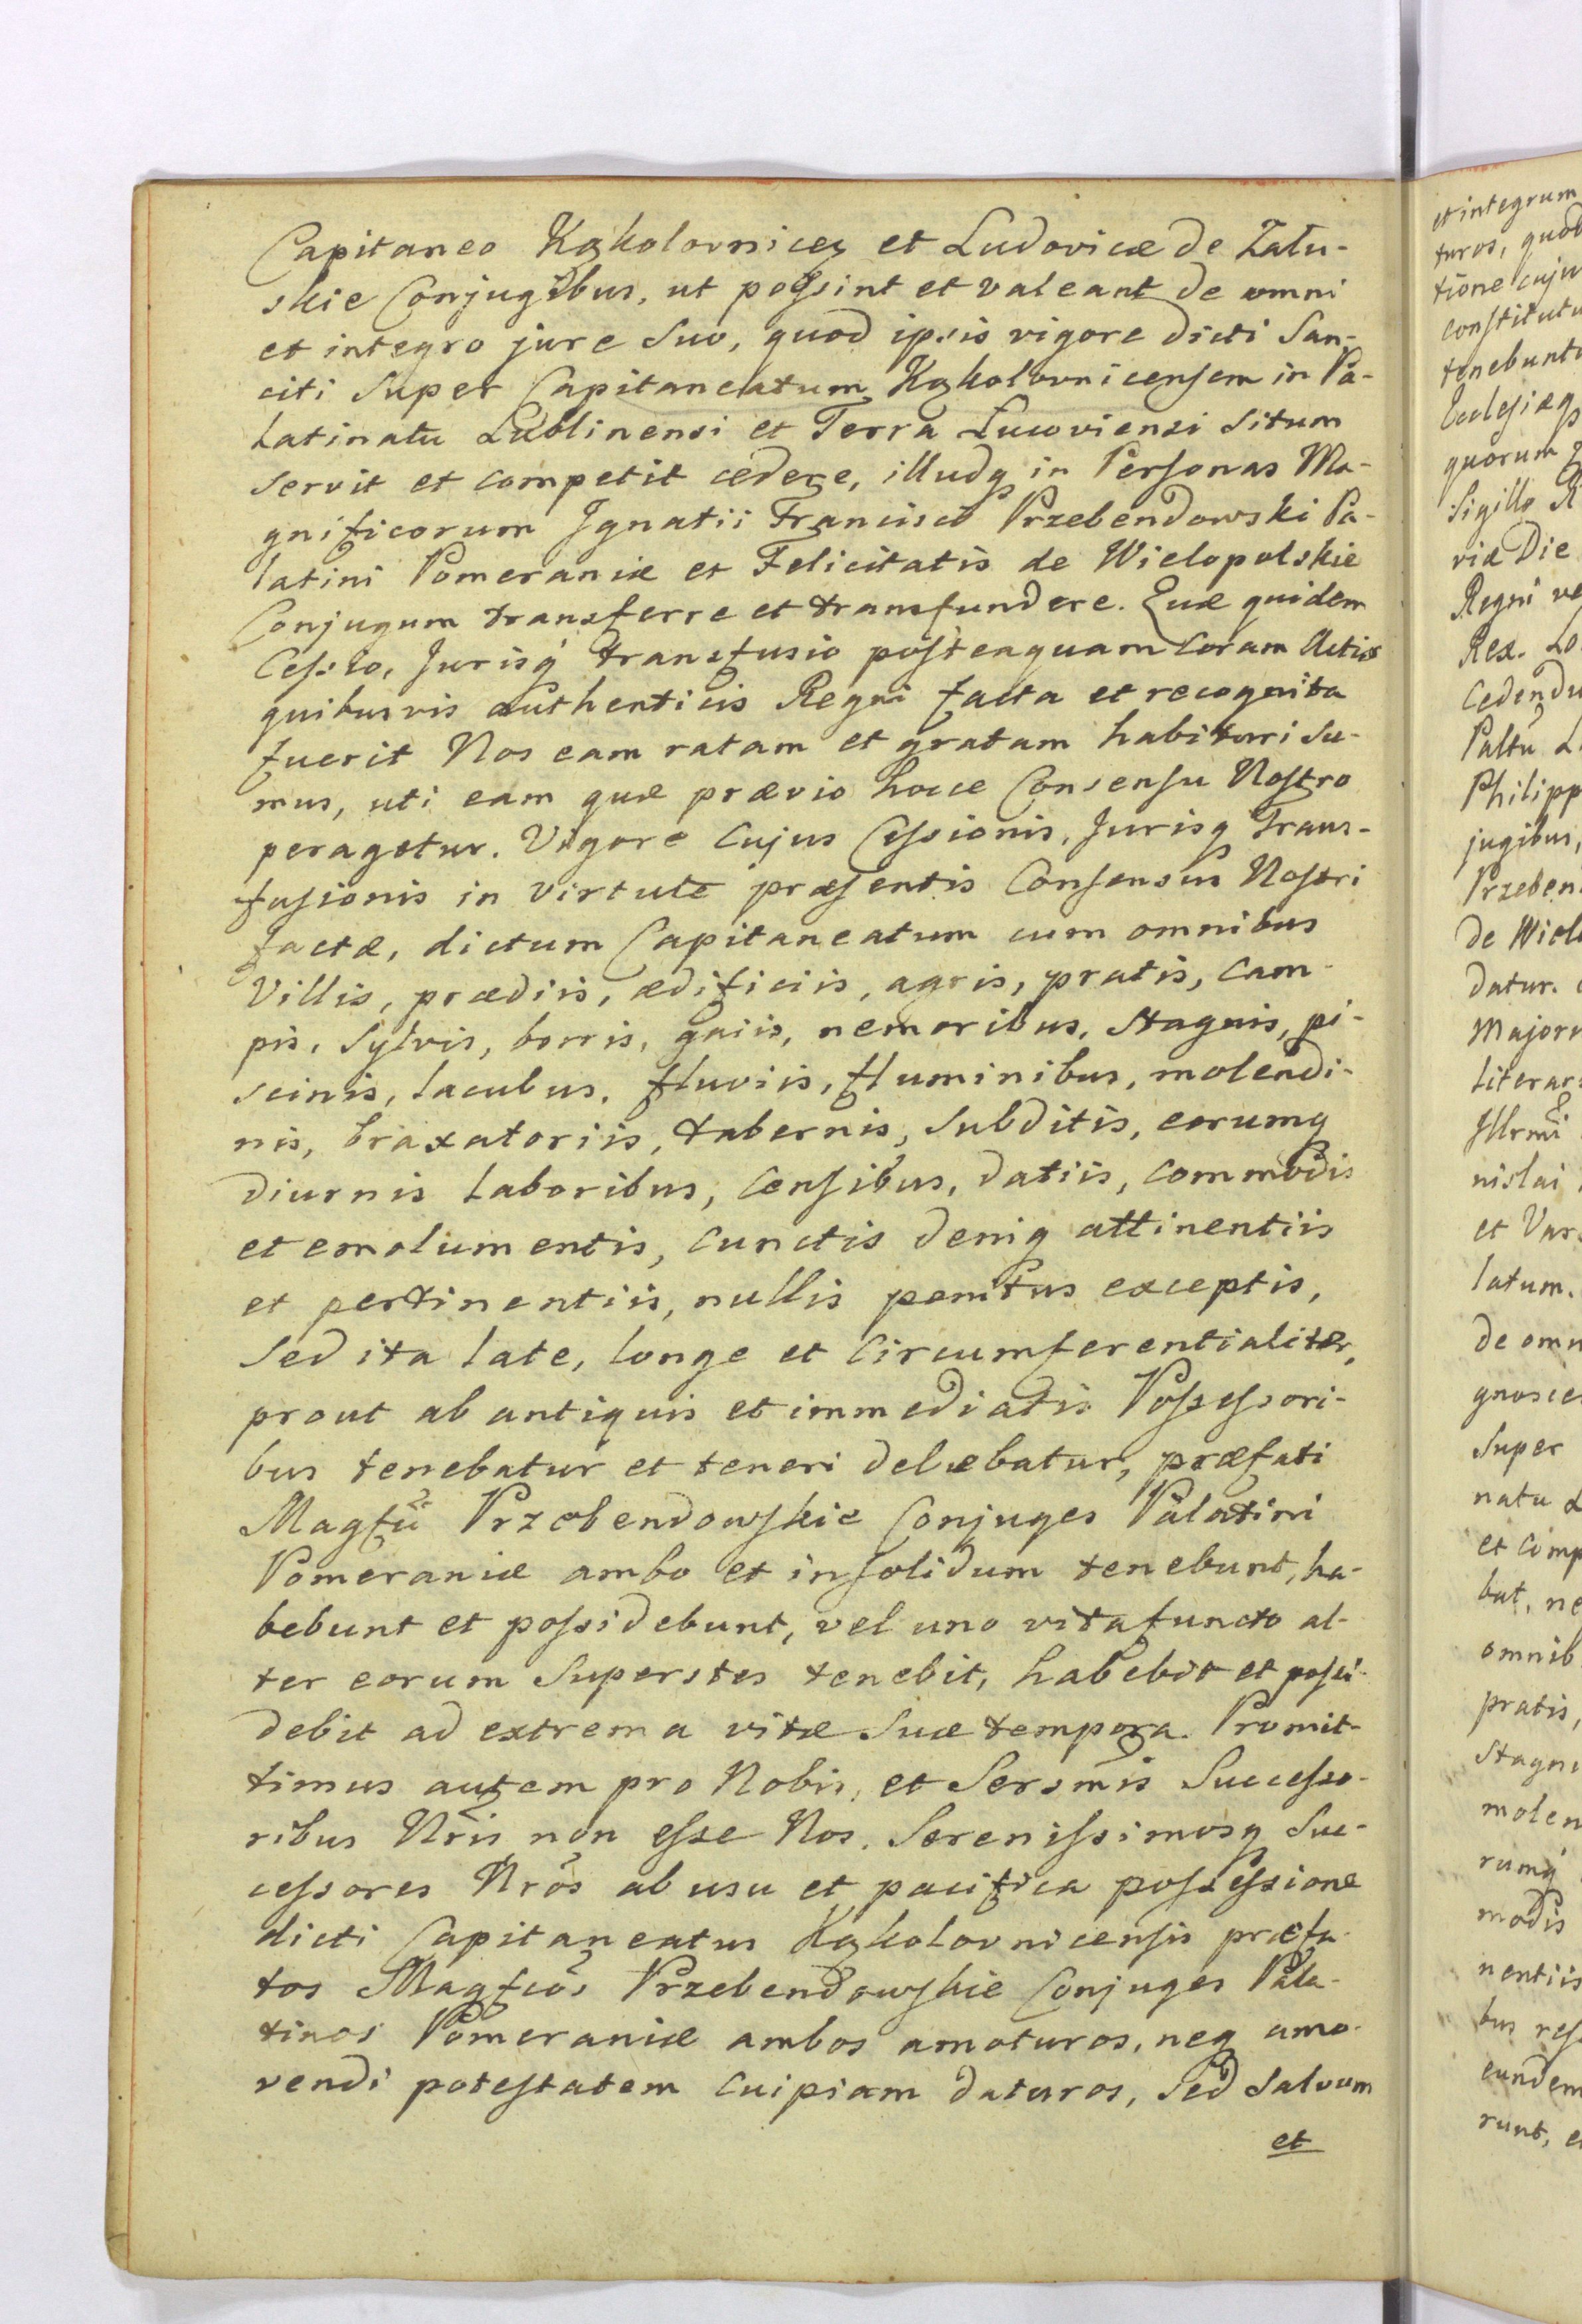 Capitaneo Kąkolovnicez et Ludovicæ de Zału-
skie Conjugibus, ut possint et valeant de omni
et integro jure suo, quod ipsis vigore dicti San-
citi super Capitaneatum Kąkolovnicensem in Pa-
latinatu Lublinensi et Terra Lucoviensi situm
servit et competit cedere, illudq in Personas Ma-
gnificorum Ignatii Francisci Przebendowski Pa-
latini Pomeraniæ et Felicitatis de Wielopolskie
Conjugum transferre et transfundere. Quæ quidem
Cessio, Jurisq transfusio posteaquam coram Actis
quibusvis authenticis Regni facta et recognita
fuerit Nos eam ratam et gratam habituri su-
mus, uti eam quæ prævio hocce Consensu Nostro
peragetur. Vigore cujus Cessionis, Jurisq Trans-
fusionis in virtute præsentis Consensus Nostri
factæ, dictum Capitaneatum cum omnibus
Villis, prædiis, ædificiis, agris, pratis, cam-
pis, sylvis, borris, gaiis, nemoribus, stagnis, pi-
scinis, lacubus, fluviis, fluminibus, molendi-
nis, braxatoriis, tabernis, subditis, eorumq
diurnis laboribus, censibus, datiis, commodis
et emolumentis, cunctis deniq attinentiis
et pertinentiis, nullis penitus exceptis,
sed ita late, longe et circumferentialiter,
prout ab antiquis et immediatis Possessori-
bus tenebatur et teneri debebatur, præfati
Magfci Przebendowskie Conjuges Palatini
Pomeraniæ ambo et insolidum tenebunt, ha-
bebunt et possidebunt, vel uno vita functo al-
ter eorum superstes tenebit, habebit et possi-
debit ad extrema vitæ suæ tempora. Promit-
timus autem pro Nobis, et Sersmis Successo-
ribus Nris non esse Nos, Serenissimosq Suc-
cessores Nros ab usu et pacifica possessione
dicti Capitaneatus Kąkolovnicensis præfa-
tos Magfcos Przebendowskie Conjuges Pala-
tinos Pomeraniæ ambos amoturos, neq amo-
vendi potestatem cuipiam daturos, sed salvum
et
et integrum
turos, quod
tione cuju
constitutu
tenebunt
Ecclesiæq
quorum
Sigillo R
viæ Die
Regni
Rex. Lo
Cedendu
Paltu L
Philipp
jugibus,
Przeben
de Wiel
datur.
Major
literar
Illrmi
nislai
et Vars
latum.
de omn
gnosce
super
natu L
et comp
bat, ne
omnib
pratis,
stagni
molen
rumq
modis
nentiis
bus res
eundem
runt, e